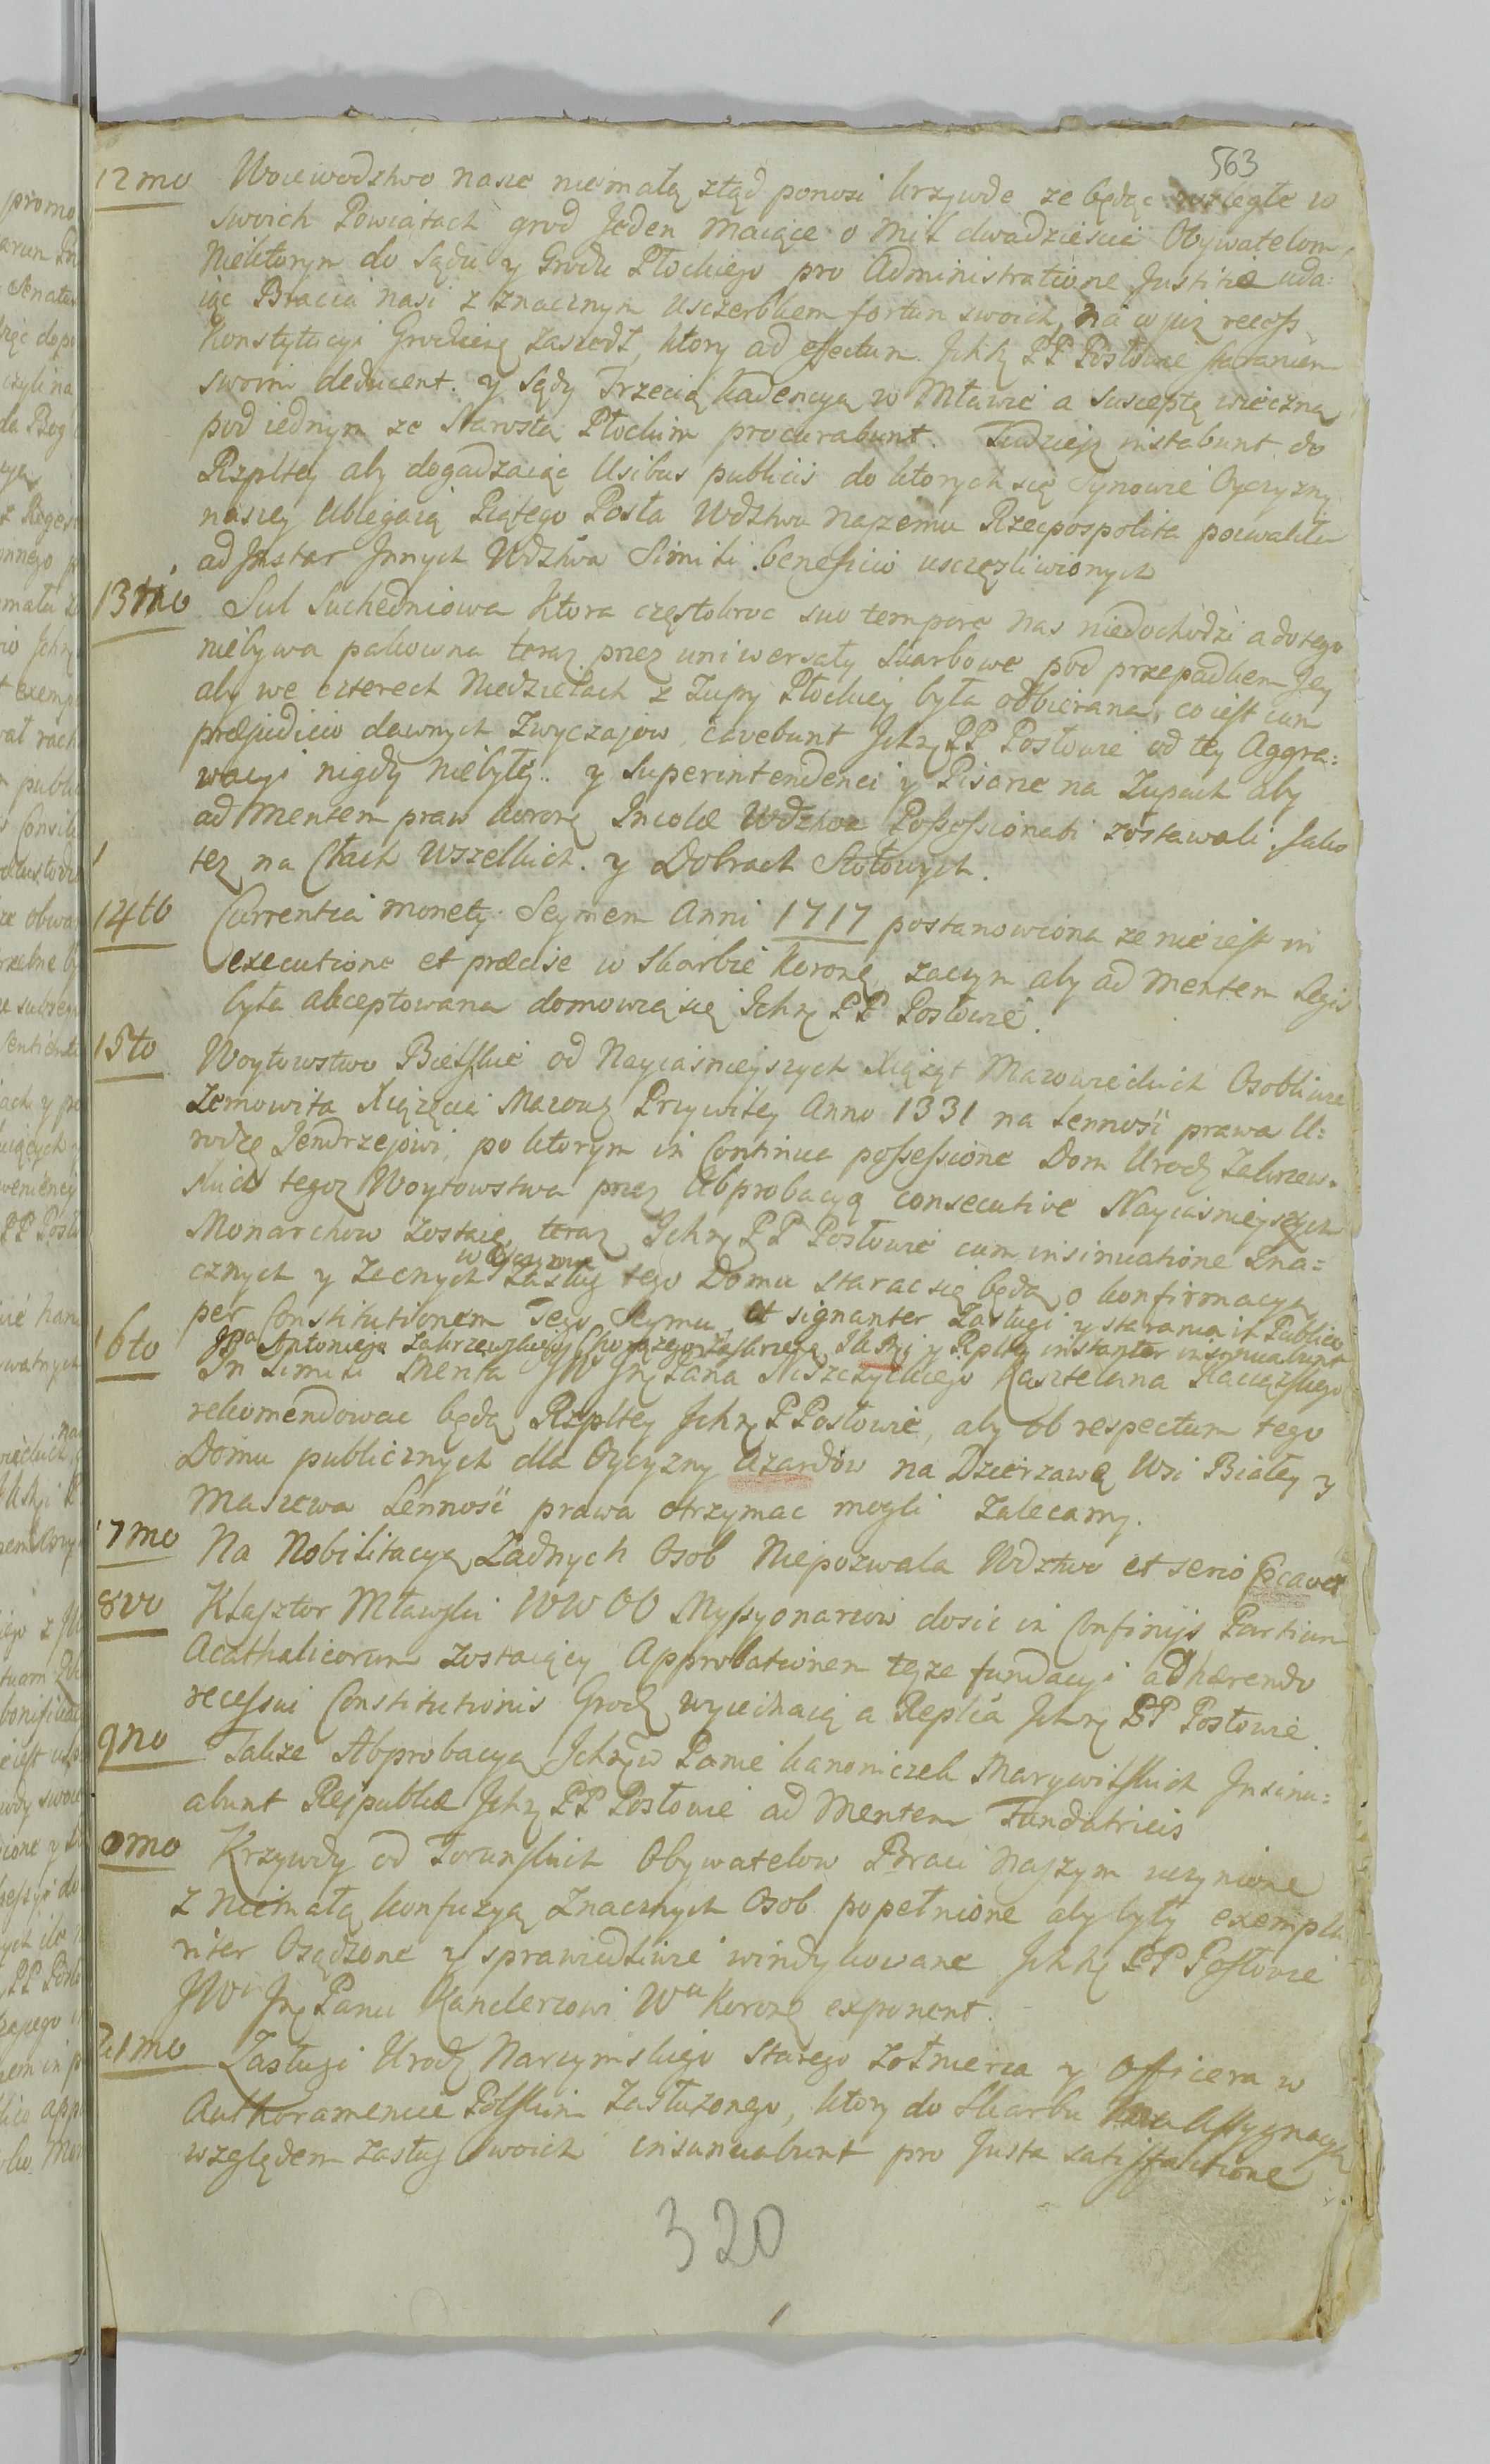 563
12mo Woiewodztwo nasze niemałą ztąd ponosi krzywdę ze będąc rozległe w
swoich Powiatach grod Jeden maiące o mil dwadziescie Obywatelom,
Niektorym do Sądu y Grodu Płockiego pro Administratione Justitiæ uda:
iąc Bracia nasi z znacznym uszczerbkiem fortun swoich, na co juz recess
Konstytucyi Grodzien zaszedł, ktory ad effectum Jchh PP Posłowie staraniem
swoim deducent. y Sądy Trzecią kadencyą w Mławie a susceptę wieczną
pod iednym ze Starostą Płockim procurabunt. Tudziesz instabunt do
Rzpltey aby dogadzaiąc Usibus publicis do ktorych się Synowie Oyczyzny
naszey ubiegaią Piątego Posła Wdztwu naszemu Rzeczpospolita pozwaliła
ad Jnstar Jnnych Wdztwa Simili beneficio uszczęzliwionych
13tio Sul Suchedniowa Ktora częstokroc suo tempore nas niedochodzi a do tego
niebywa pakowna teraz przez uniwersały skarbowe pod przepadkiem Jey
aby we czterech Niedzielach z Zupy Płockiey była odbierana, co iest cum
præjudicio dawnych Zwyczajow, cavebunt Jchz PP Posłowie od tey Aggra:
wacyi nigdy niebyłey. y Superintendenci y Pisarze na Zupach aby
ad Mentem praw koronę Incolæ Wdztwa Possessionati zostawali. Jako
tez na Cłach Wszelkich. y Dobrach Stołowych.
14to Currentia monety Seymem Anni 1717 postanowiona ze nie iest in
executione et præcise w Skarbie Koronę zaczym aby ad Mentem Legis
była akceptowana domowią się Jchz PP Posłowie.
15to Woytowstwo Bielskie od Nayiasnieyszych Xiąząt Mazowieckich Osobliwie
Zemowita Xiązęcia Mazouz Przywiley Anno 1331 na Lennosć prawa U:
rodzę Jendrzejowi, po ktorym in Continua possessione Dom Urodz Zakrzew:
skich tegoz Woytowstwa przez Abprobacyą consecutive Nayiasnieyszych
Monarchow zostaie, teraz Jchz PP Posłowie cum insinuatione Zna:
cznych y Zacnych w Oyczyznie zasług tego Domu starac się będą o konfirmacyą
per Constitutionem Tego Seymu et signanter Zasługi y starania in Publico
JPa Antoniego Zakrzewskiego Chorązego JKMci y Rpltey instanter insinuabunt
16to In simili Merita JW Jmz Pana Niszczyckiego Kasztelana Raciąskiego
rekomendowac będą Rzpltey Jchz PPosłowie, aby ob respectum tego
Domu publicznych dla Oyczyzny Azardow na Dzierzawę Wsi Białey y
Maszewa Lennosć prawa otrzymac mogli zalecamy.
17mo Na Nobilitacyą Zadnych Osob Niepozwala Wdztwo et serio præcavet
8vo Klasztor Mławski WW OO Myssyonarzow dosic in Confinijs Partium
Acatholicorum zostaiący Approbationem teyze fundacyi adhærendo
recessui Constitutionis Grodz wyiednaią a Replca Jchz PP Posłowie.
9no Takze Abprobacyą Jchmw Panie kanoniczek Marywilskich Jnsinu:
abunt Rejpublicæ Jchz PP Posłowie ad Mentem Fundatricis
0mo Krzywdy od Torunskich Obywatelow Braci Naszym uczynione
z niemałą konfuzyą Znacznych Osob popełnione aby były exempla
riter Osądzone y sprawiedliwie windykowane Jchh PP Posłowie
JWu Jmz Panu Kanclerzowi Wu Koronę exponent.
21mo Zasługi Urodz Narzymskiego starego zołnierza y Officera w
Authoramencie Polskim Zasłuzonego, ktory do Skarbu ma Assygnacyą
względem zasług swoich insinuabunt pro Justa satisfactione
320